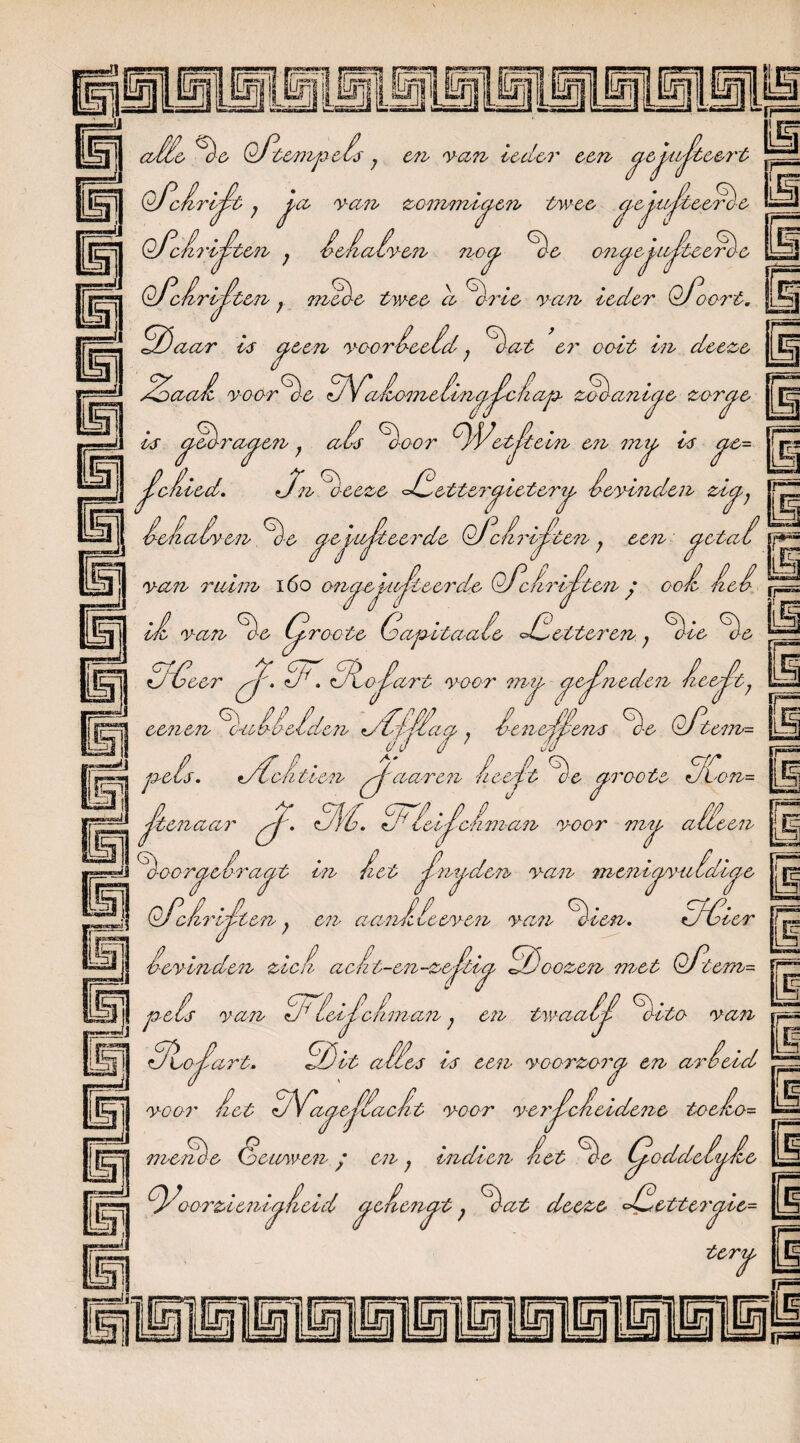 alle de Stempels, en van ieder een gejuſteert
Schrift, ja van zommigen twee gejuſteerde
Schriften, behalven nog de ongejuſteerde
Schriften, mede twee à drie van ieder Soort.
Daar is geen voorbeeld, dat 'er ooit in deeze
Zaak voor de Nakomelingſchap zodanige zorge
is gedragen, als door Wetſtein en my is ge=
ſchied. In deeze Lettergietery bevinden zig,
behalven de gejuſteerde Schriften, een getal
van ruim 160 ongejuſteerde Schriften; ook heb
ik van de Groote Capitaale Letteren, die de
Heer J. F. Roſart voor my geſneden heeft,
eenen dubbelden Afſlag, beneffens de Stem=
pels. Achtien Jaaren heeft de groote Kon=
ſtenaar J. M. Fleiſchman voor my alleen
doorgebragt in het ſnyden van menigvuldige
Schriften, en aankleeven van dien. Hier
bevinden zich acht-en-zeſtig Doozen met Stem=
pels van Fleiſchman, en twaalf dito van
Roſart. Dit alles is een voorzorg en arbeid
voor het Nageſlacht voor verſcheidene toeko=
mende Eeuwen; en, indien het de Goddelyke
Voorzienigheid gehengt, dat deeze Lettergie=
tery